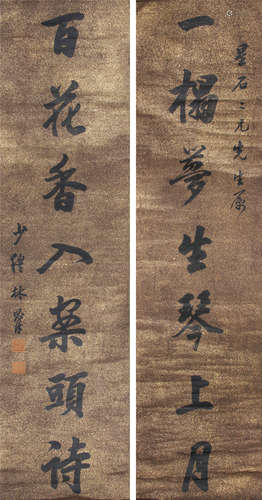 一榻夢生琴上月
星石二兄先生屬
百花香入案頭詩
少穆林